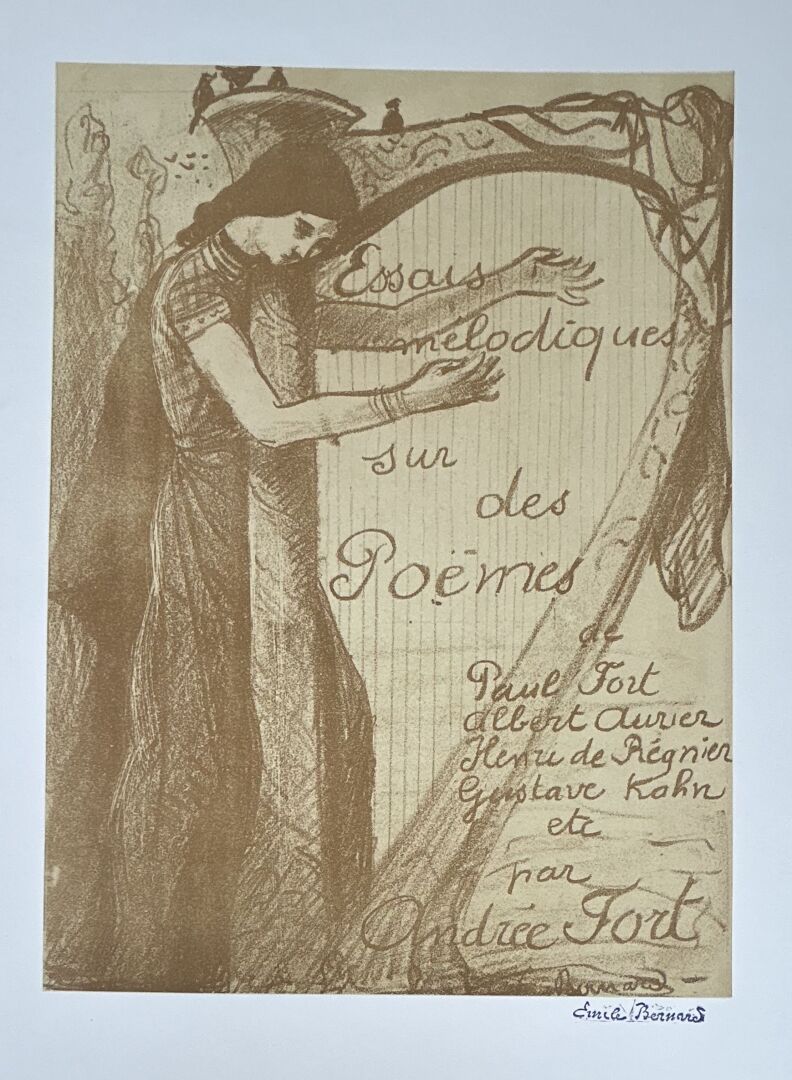 Essais
mélodiques
sur
des
Poëmes
de
Paul Fort
Albert Aurier
Henri de Régnier
Gustave Kahn
etc
par
Andrée Fort
Bernard
Emile Bernard